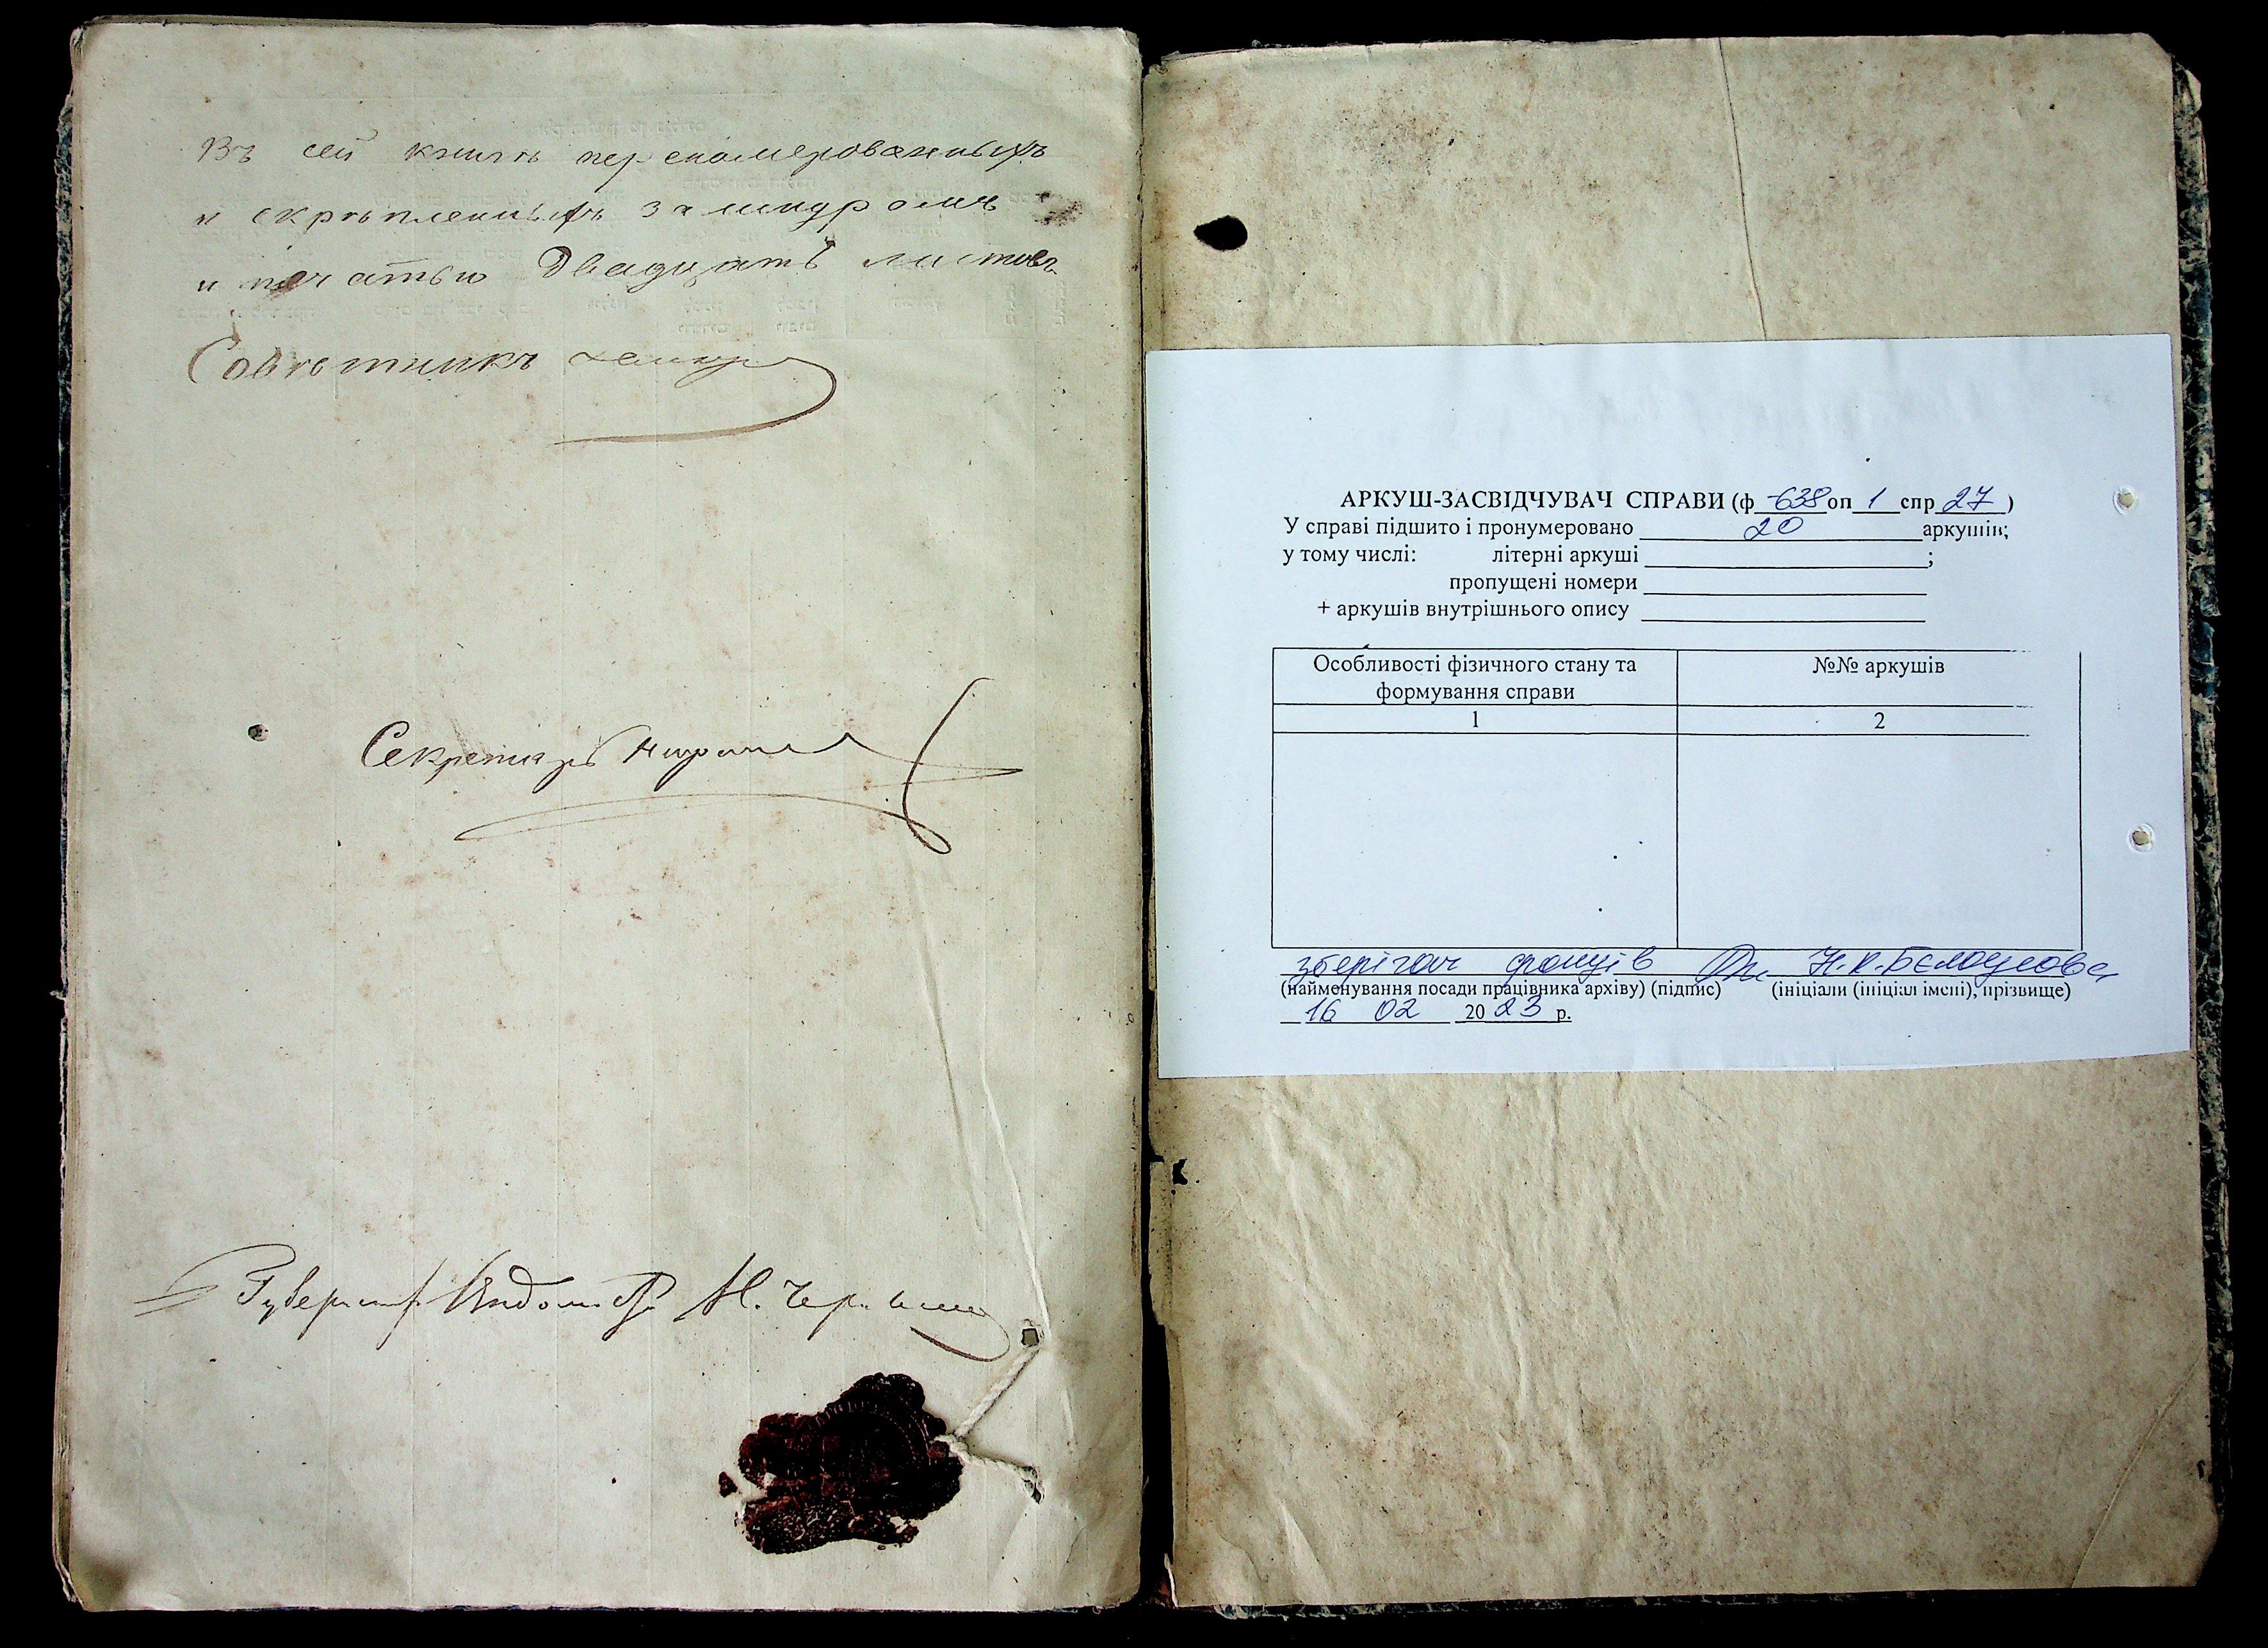 Въ сей книгѣ перенамерованныхъ
и скрѣпленныхъ за шнуромъ
и печатью Двадцать листовъ
Совѣтникъ
Секретарь
АРКУШ-ЗАСВІДЧУВАЧ СПРАВИ (ф 638 оп 1 спр 27 )
У справі підшито і пронумеровано 20 аркушів;
у тому числі: літерні аркуші ;
пропущені номери
+ аркушів внутрішнього опису
Особливості фізичного стану та формування справи
№№ аркушів
1 2
зберігач фондів Н.К.Бєлоусова
(найменування посади працівника архіву) (підпис) (ініціали (ініціал імені), прізвище)
16 02 2023 р.